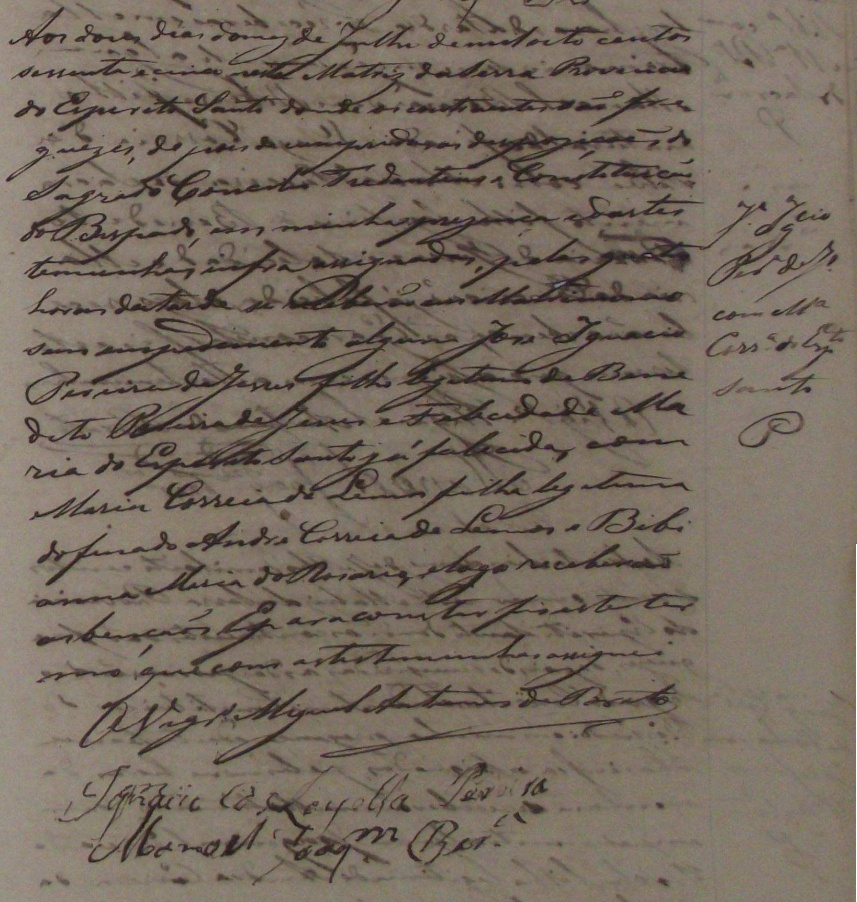 Aos doses dias do mez de Julho de mil oito centos
sessenta e cinco nesta Matriz da Serra Provincia
do Espirito Santo donde os contrahentes são fre
guezes, depois de cumpridas as desposiçoēs do
Sagrado Concilio Tredentino e Constituição
do Bispado, em minha presença e das tes
temunhas infra assignadas, pelas quatro
horas da tarde se receberão em Matrimonio
sem empedimento algum José Ignacio
Pereira de Jesus filho legitimo de Bene
dito Pereira de Jesus e Felicidade Ma
ria do Espirito Santo já falecida, com
Maria Correia de Lemos filha legitima
do finado Andre Correia de Lemos e Bibi
anna Maria do Rosario, e logo receberão
as bencaõs. E para constar fis este ter
mo, que com as testemunhas assignei.
O Vigr.º Miguel Antunes de Brito
Ignacio de Loyolla Pereira
Manoel Joaq.m
J.e Igcio
Per.a de Js.
com M.a
Corr.a do Esp.to
Santo
P